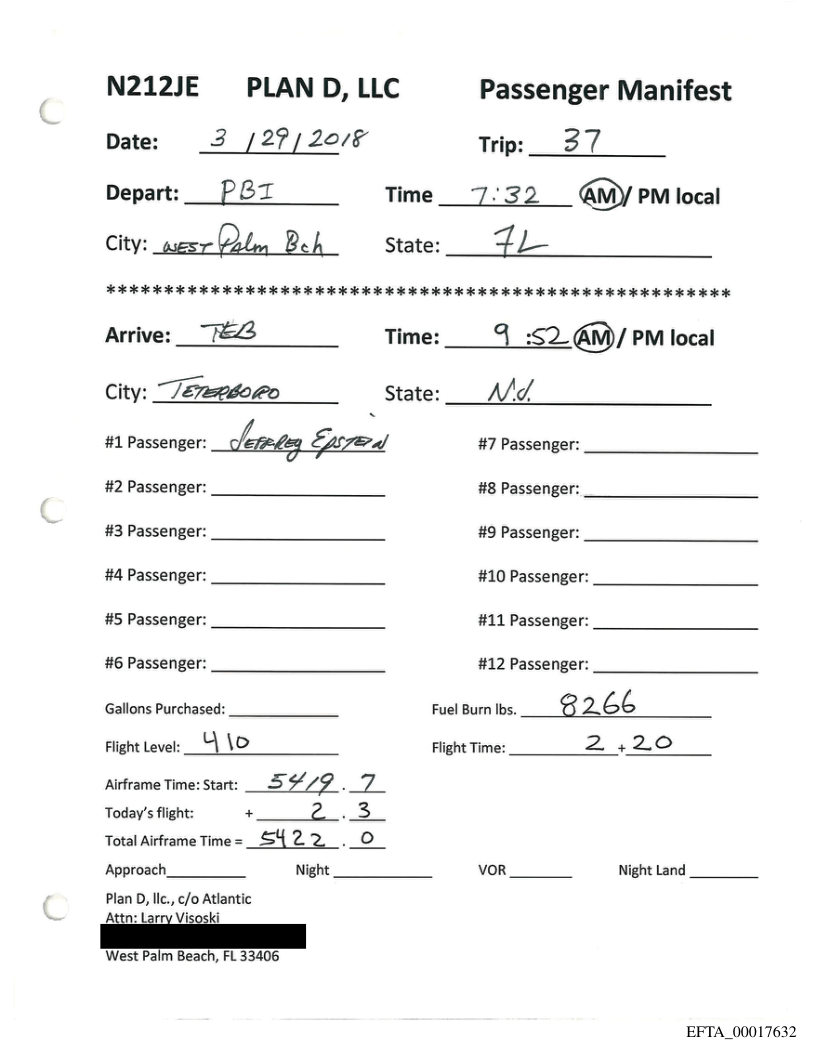 N212JE PLAN D, LLC Passenger Manifest
Date: 3 / 29 / 2018 Trip: 37
Depart: PBI Time 7:32 AM/ PM local
City: WEST Palm Bch State: FL
******************************************************
Arrive: TEB Time: 9 :52 AM / PM local
City: TETERBORO State: N.J.
#1 Passenger: JEFFREY EPSTEIN #7 Passenger:
#2 Passenger: #8 Passenger:
#3 Passenger: #9 Passenger:
#4 Passenger: #10 Passenger:
#5 Passenger: #11 Passenger:
#6 Passenger: #12 Passenger:
Gallons Purchased: Fuel Burn lbs. 8266
Flight Level: 410 Flight Time: 2 + 20
Airframe Time: Start: 5419 . 7
Today's flight: + 2 . 3
Total Airframe Time = 5422 . 0
Approach Night VOR Night Land
Plan D, llc., c/o Atlantic
Attn: Larry Visoski
West Palm Beach, FL 33406
EFTA_00017632